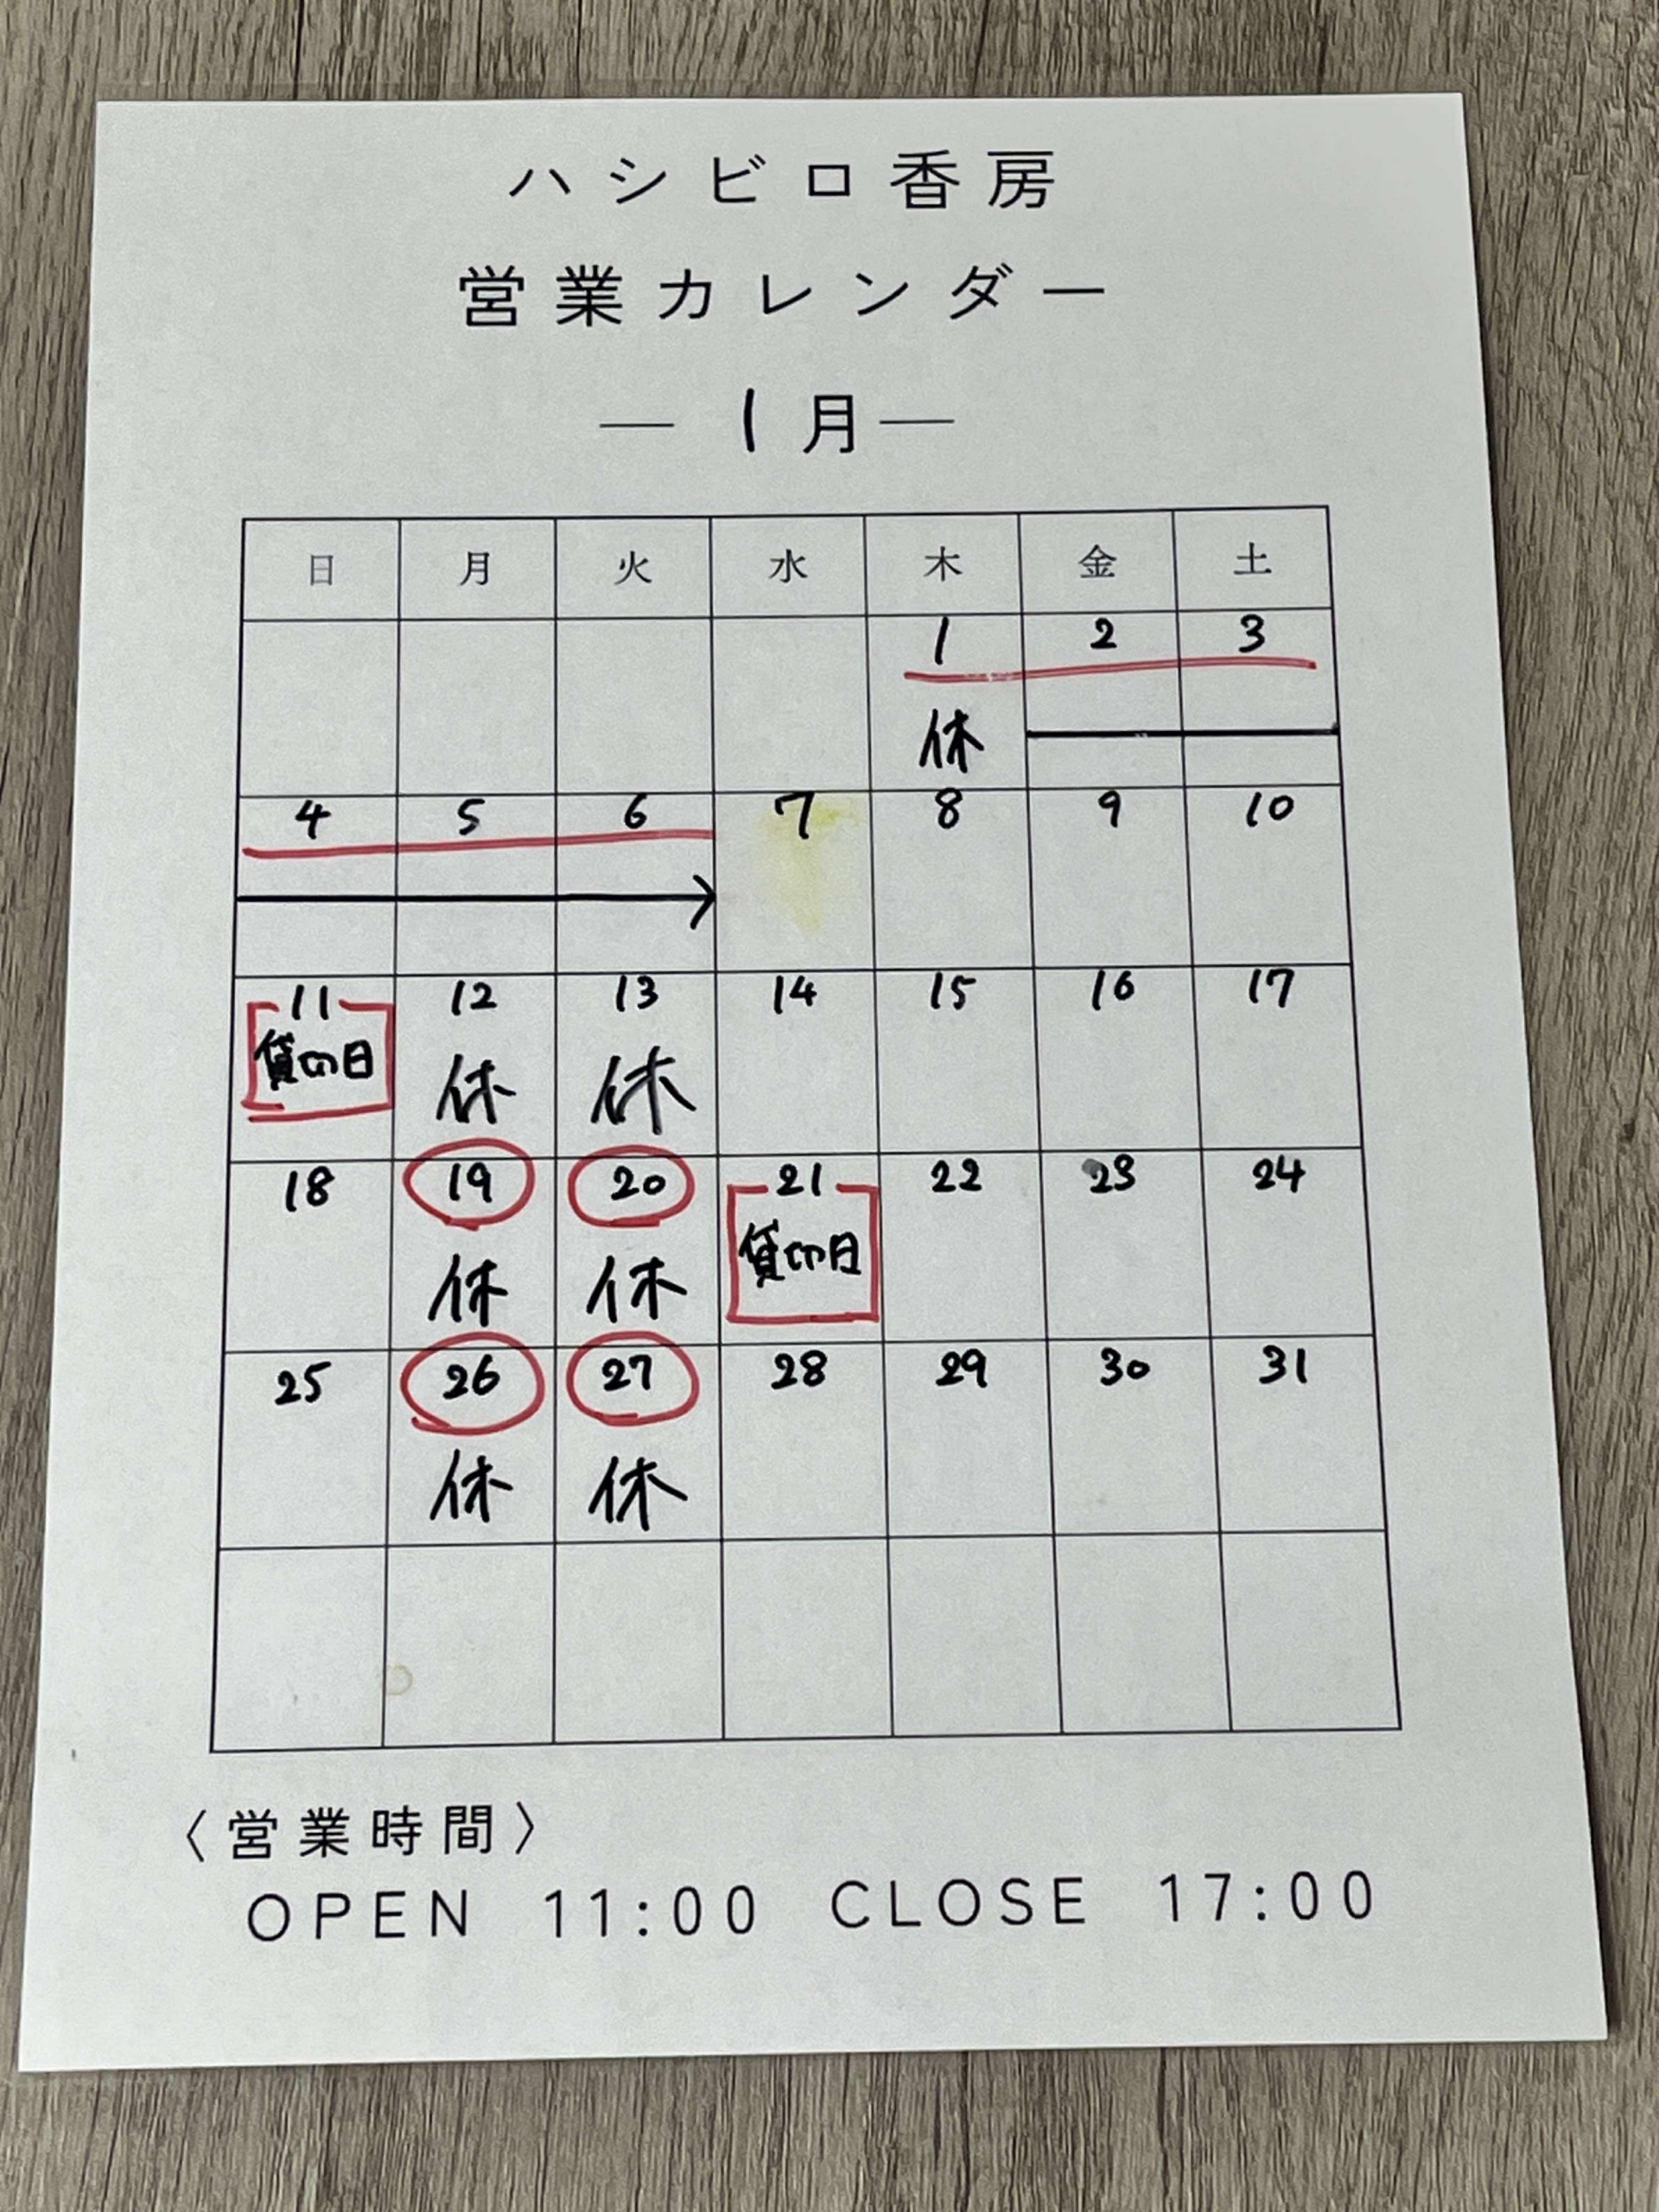 ハシビロ香房
営業カレンダー
― 1月 ―
日 月 火 水 木 金 土
1 2 3
休
4 5 6 7 8 9 10
11 12 13 14 15 16 17
貸切日 休 休
18 19 20 21 22 23 24
休 休 貸切日
25 26 27 28 29 30 31
休 休
〈営業時間〉
OPEN 11:00 CLOSE 17:00